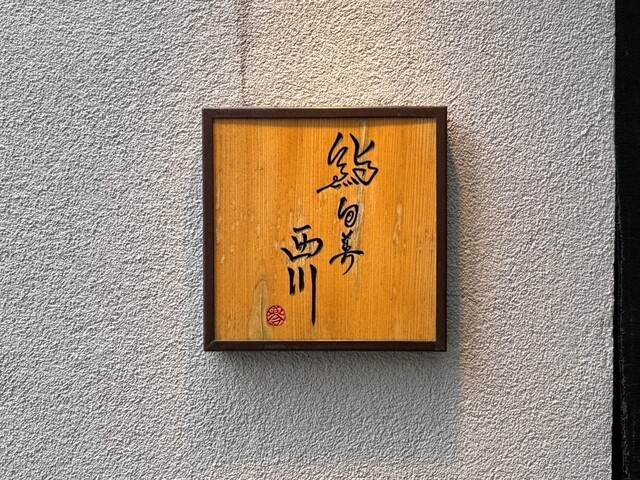 鮨旬善
西川